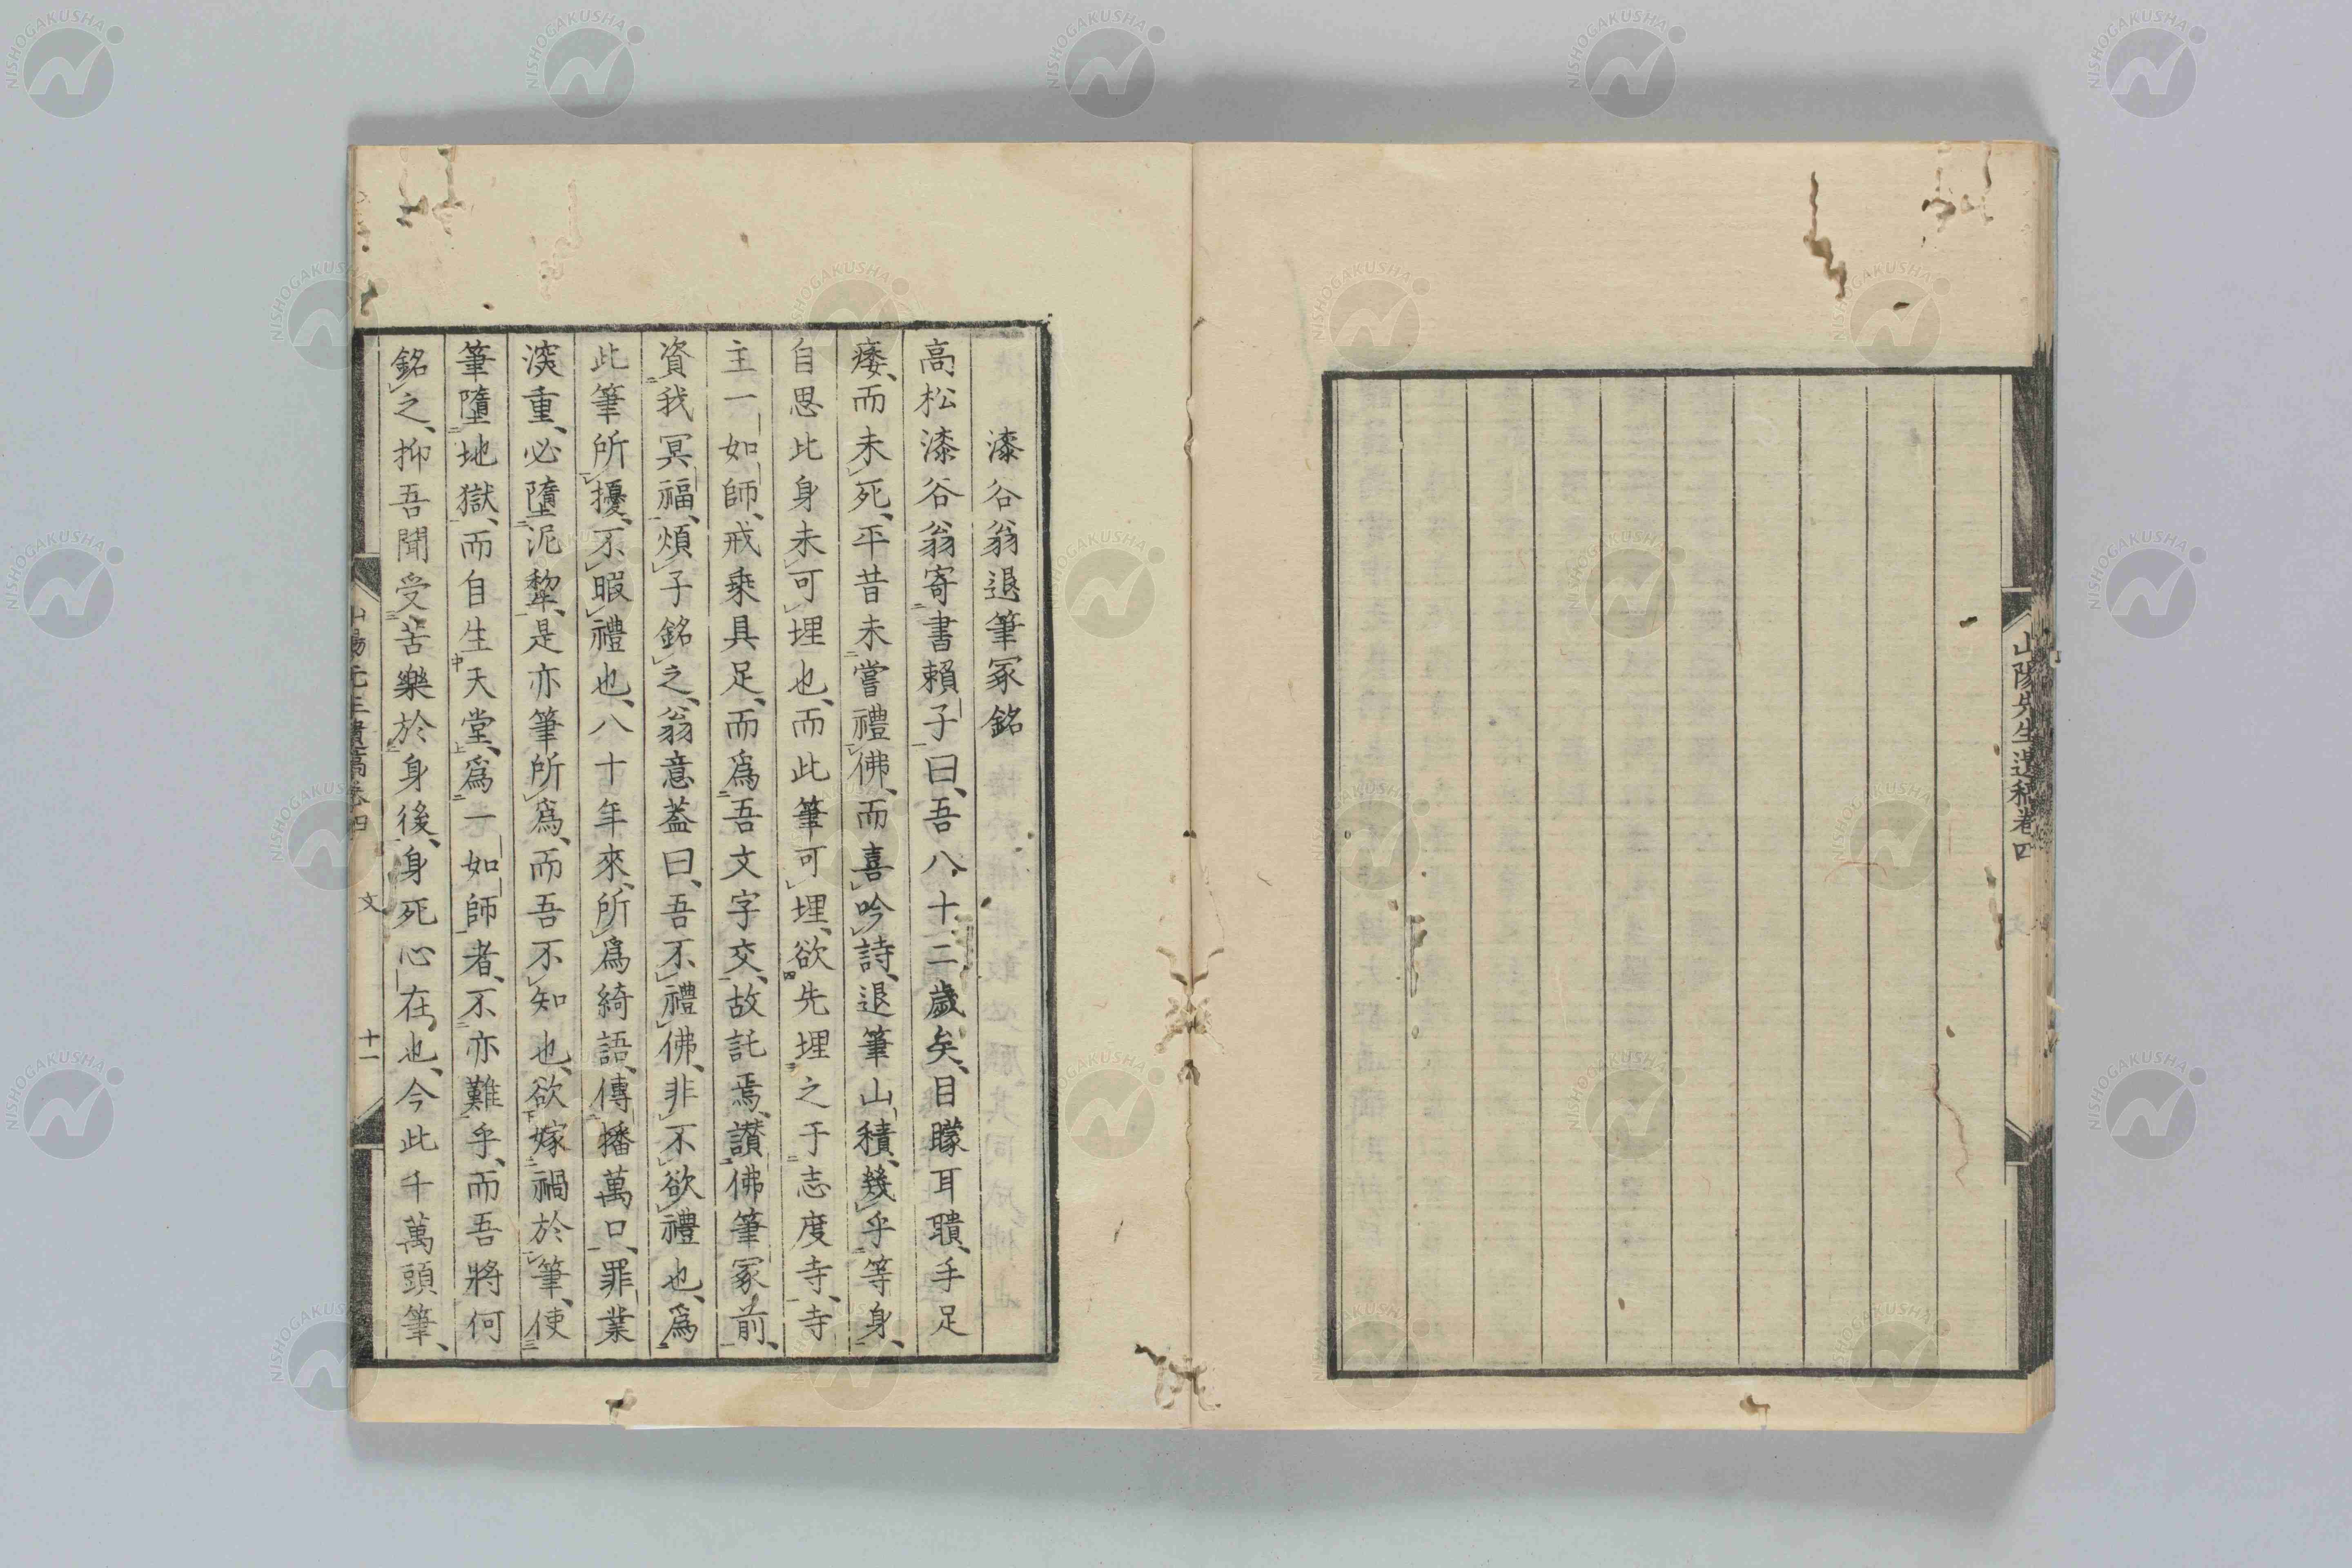 山陽先生遺稿卷四
漆谷翁退筆冢銘
高松漆谷翁寄書賴子曰、吾八十二歲矣、目矇耳聵、手足
痿、而未死、平昔未嘗禮佛、而喜吟詩、退筆山積、幾乎等身、
自思此身未可埋也、而此筆可埋、欲先埋之于志度寺、寺
主一如師、戒乘具足、而爲吾文字交、故託焉、讃佛筆冢前、
資我冥福、煩子銘之、翁意蓋曰、吾不禮佛、非不欲禮也、爲
此筆所擾、不暇禮也、八十年來、所爲綺語、傳播萬口、罪業
深重、必墮泥犂、是亦筆所爲、而吾不知也、欲嫁禍於筆、使
筆墮地獄、而自生天堂、爲一如師者、不亦難乎、而吾將何
銘之、抑吾聞受苦樂於身後、身死心在也、今此千萬頭筆、
山陽先生遺稿卷四 文 十一
NISHOGAKUSHA